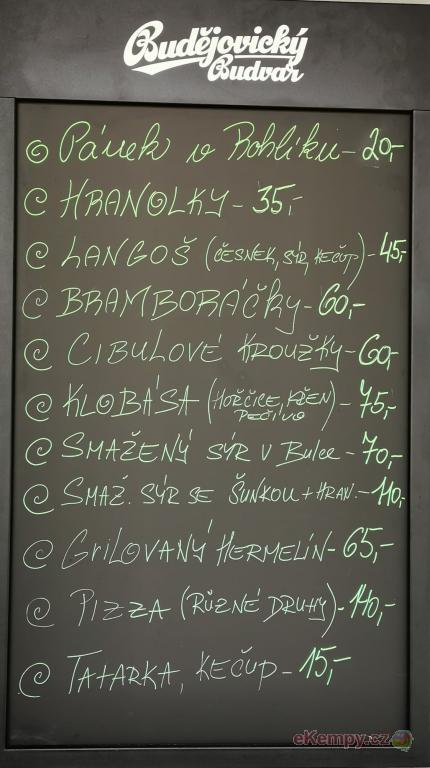 Budějovický
Budvar
Párek v Rohlíku - 20,-
HRANOLKY - 35,-
LANGOŠ (ČESNEK, SÝR, KEČUP) - 45,-
BRAMBORÁČKY - 60,-
CIBULOVÉ KROUŽKY - 60,-
KLOBÁSA (HOŘČICE, KŘEN, PEČIVO) - 75,-
SMAŽENÝ SÝR V Bulce - 70,-
SMAŽ. SÝR SE ŠUNKOU + HRAN. - 110,-
GRILOVANÝ HERMELÍN - 65,-
PIZZA (RŮZNÉ DRUHY) - 140,-
TATARKA, KEČUP - 15,-
eKempy.cz